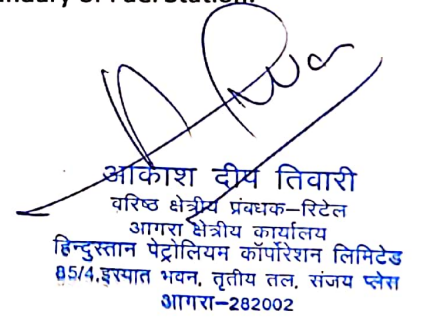 ndary of Fuel Station.
आकाश दीप तिवारी
वरिष्ठ क्षेत्रीय प्रंबधक–रिटेल
आगरा क्षेत्रीय कार्यालय
हिन्दुस्तान पेट्रोलियम कॉर्पोरेशन लिमिटेड
85/4,इस्पात भवन, तृतीय तल, संजय प्लेस
आगरा–282002